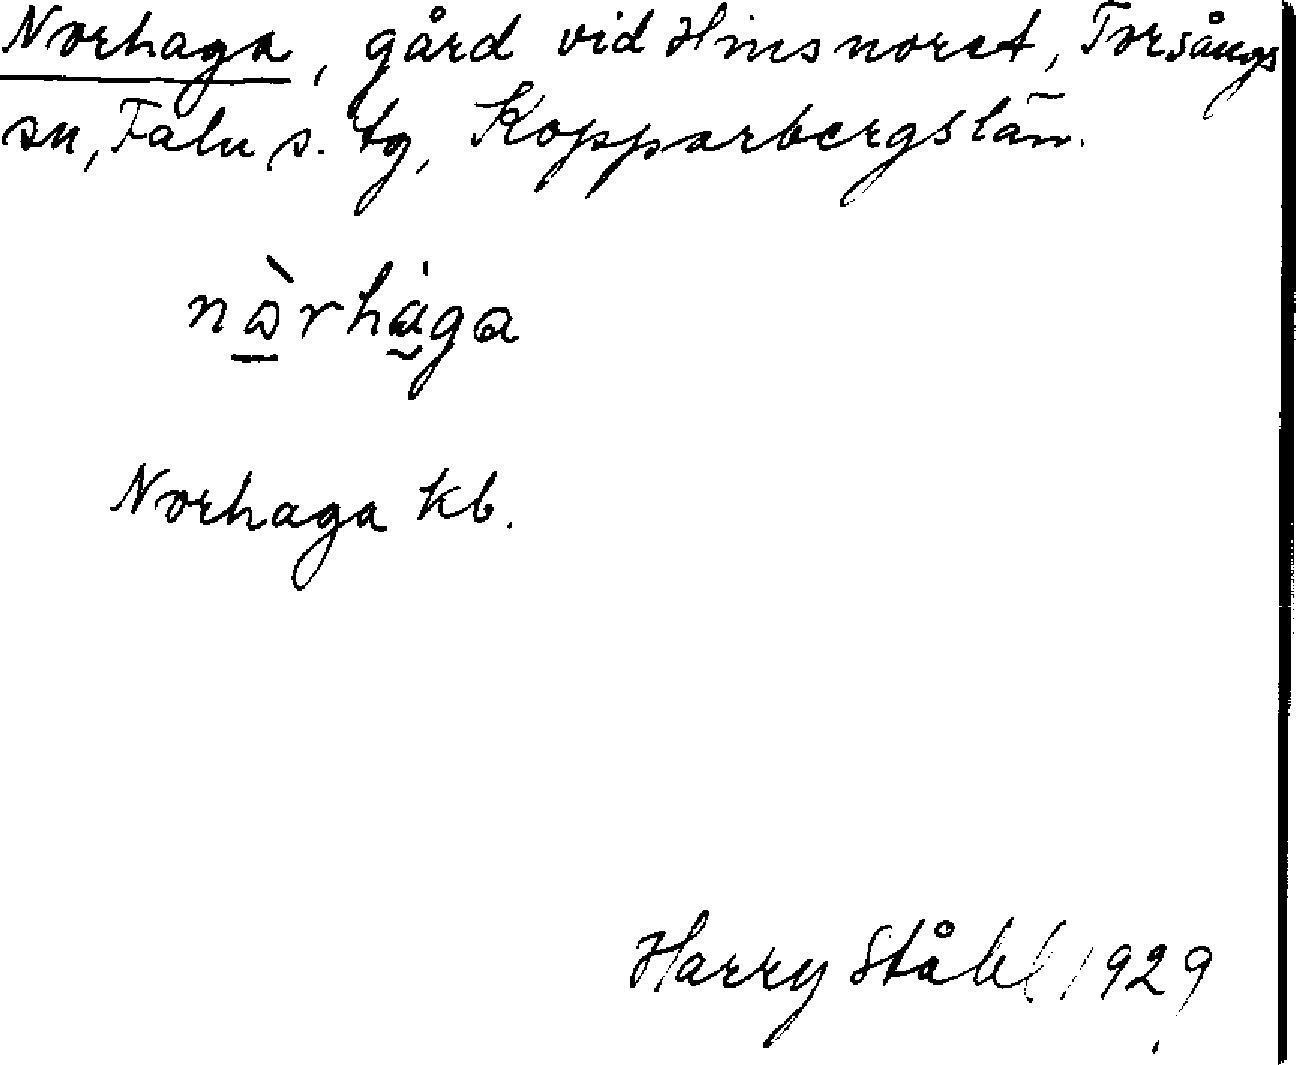 Norhaga, gård vid Hinsnoret, Torsångs
sn, Falu s. tg, Kopparbergs län.
nòrhága
Norhaga kb.
Harry Ståhl 1929